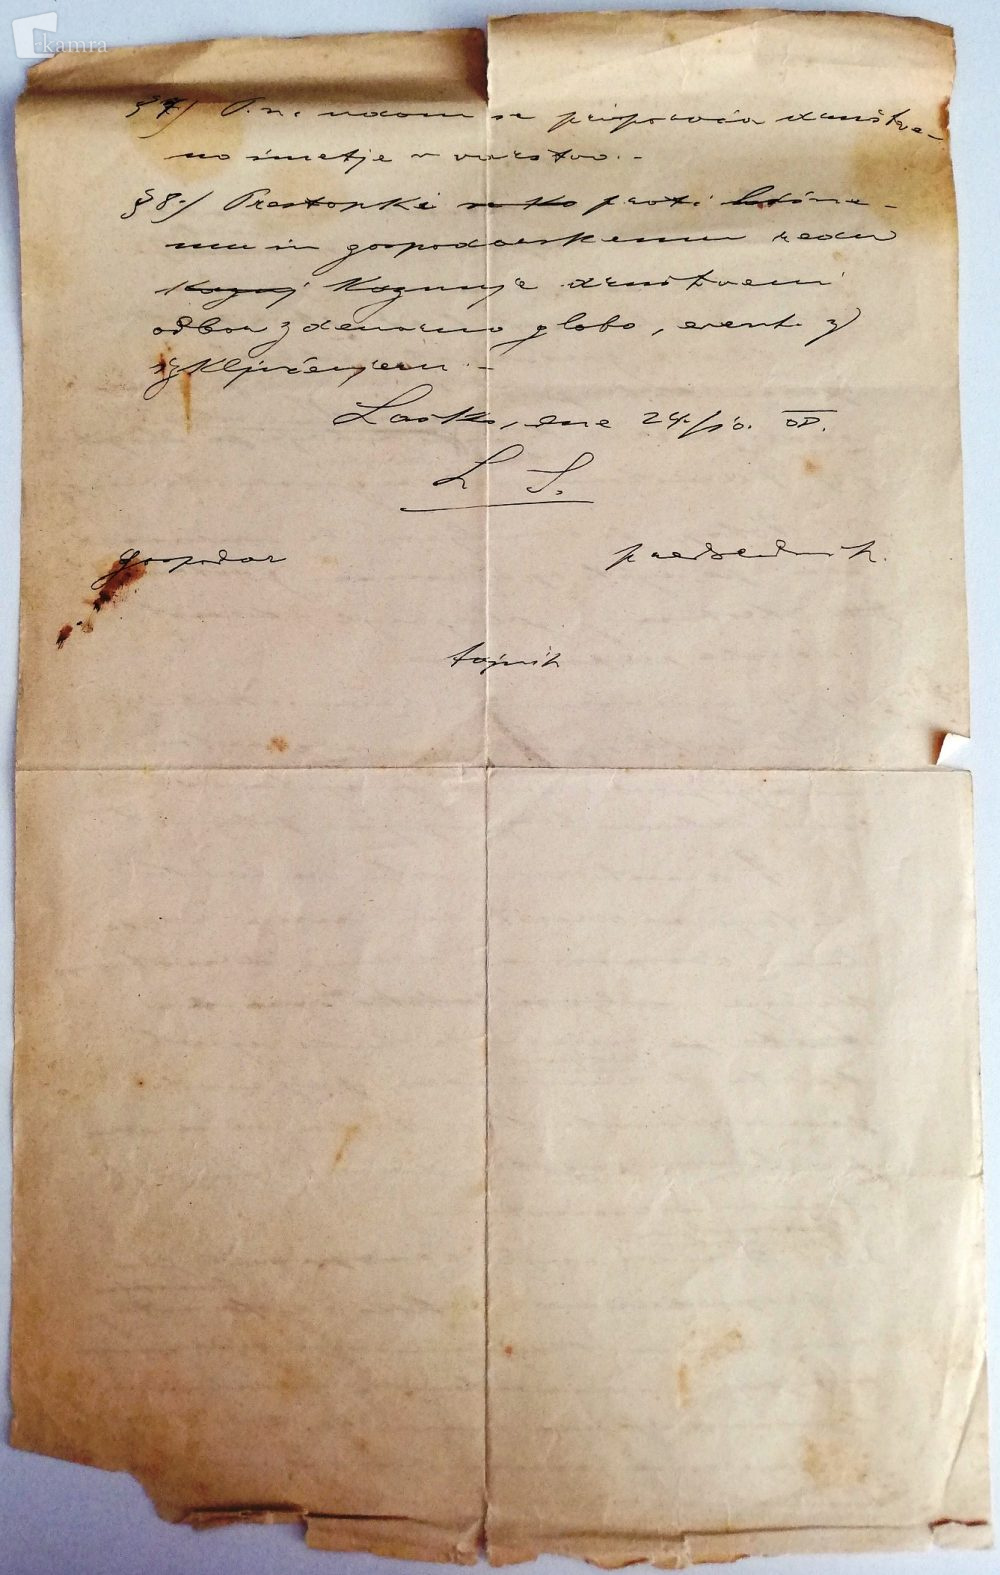 kamra
§ 7.) P. n. udom se priporoča društve-
no imetje v varstvo. -
§ 8.) Prestopki proti hišne-
mu in gospodarskemu redu
kaznuje društveni
odbor z denarno globo, event. z
izključenjem. -
Laško, dne 24./10.
L. S.
gospodar predsednik.
tajnik